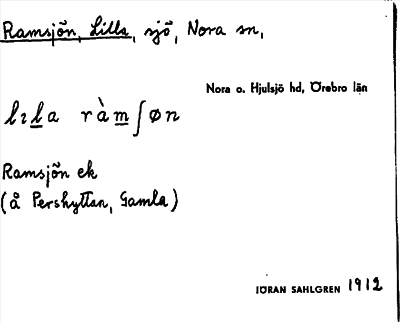 Ramsjön, Lilla, sjö, Nora sn,
Nora o. Hjulsjö hd, Örebro län
lɩla ràmʃøn
Ramsjön ek
(å Pershyttan, Gamla)
JÖRAN SAHLGREN 1912